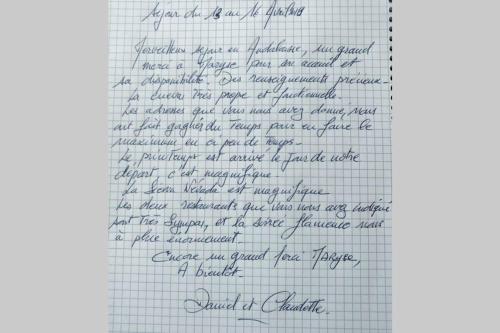 Séjour du 13 au 16 Avril 2019
Merveilleux séjour en Andalousie, un grand
merci à Maryse pour son accueil et
sa disponibilité. Des renseignements précieux.
La cueva très propre et fonctionnelle.
Les adresses que vous nous avez donné, nous
ont fait gagner du temps pour en faire le
maximum en si peu de temps.
Le printemps est arrivé le jour de notre
départ, c'est magnifique.
La Sierra Névada est magnifique
Les deux restaurants que vous nous avez indiqué
sont très sympas, et la soirée flamenco nous
à plu énormément.
Encore un grand Merci MARYSE,
A bientôt.
Daniel et Claudette.